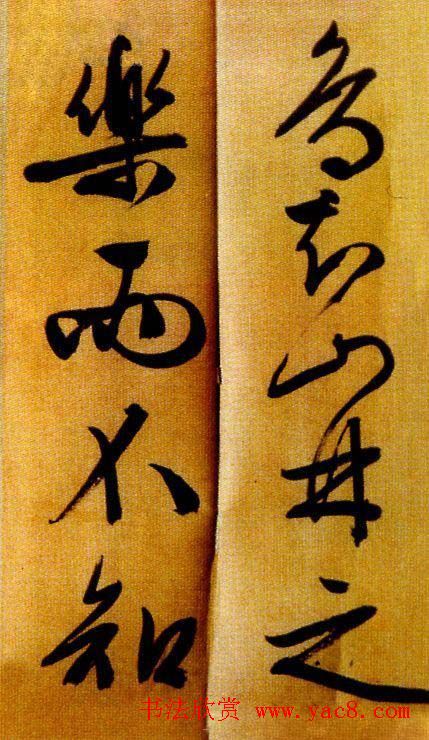 鳥知山林之
樂而不知
书法欣赏 www.yac8.com